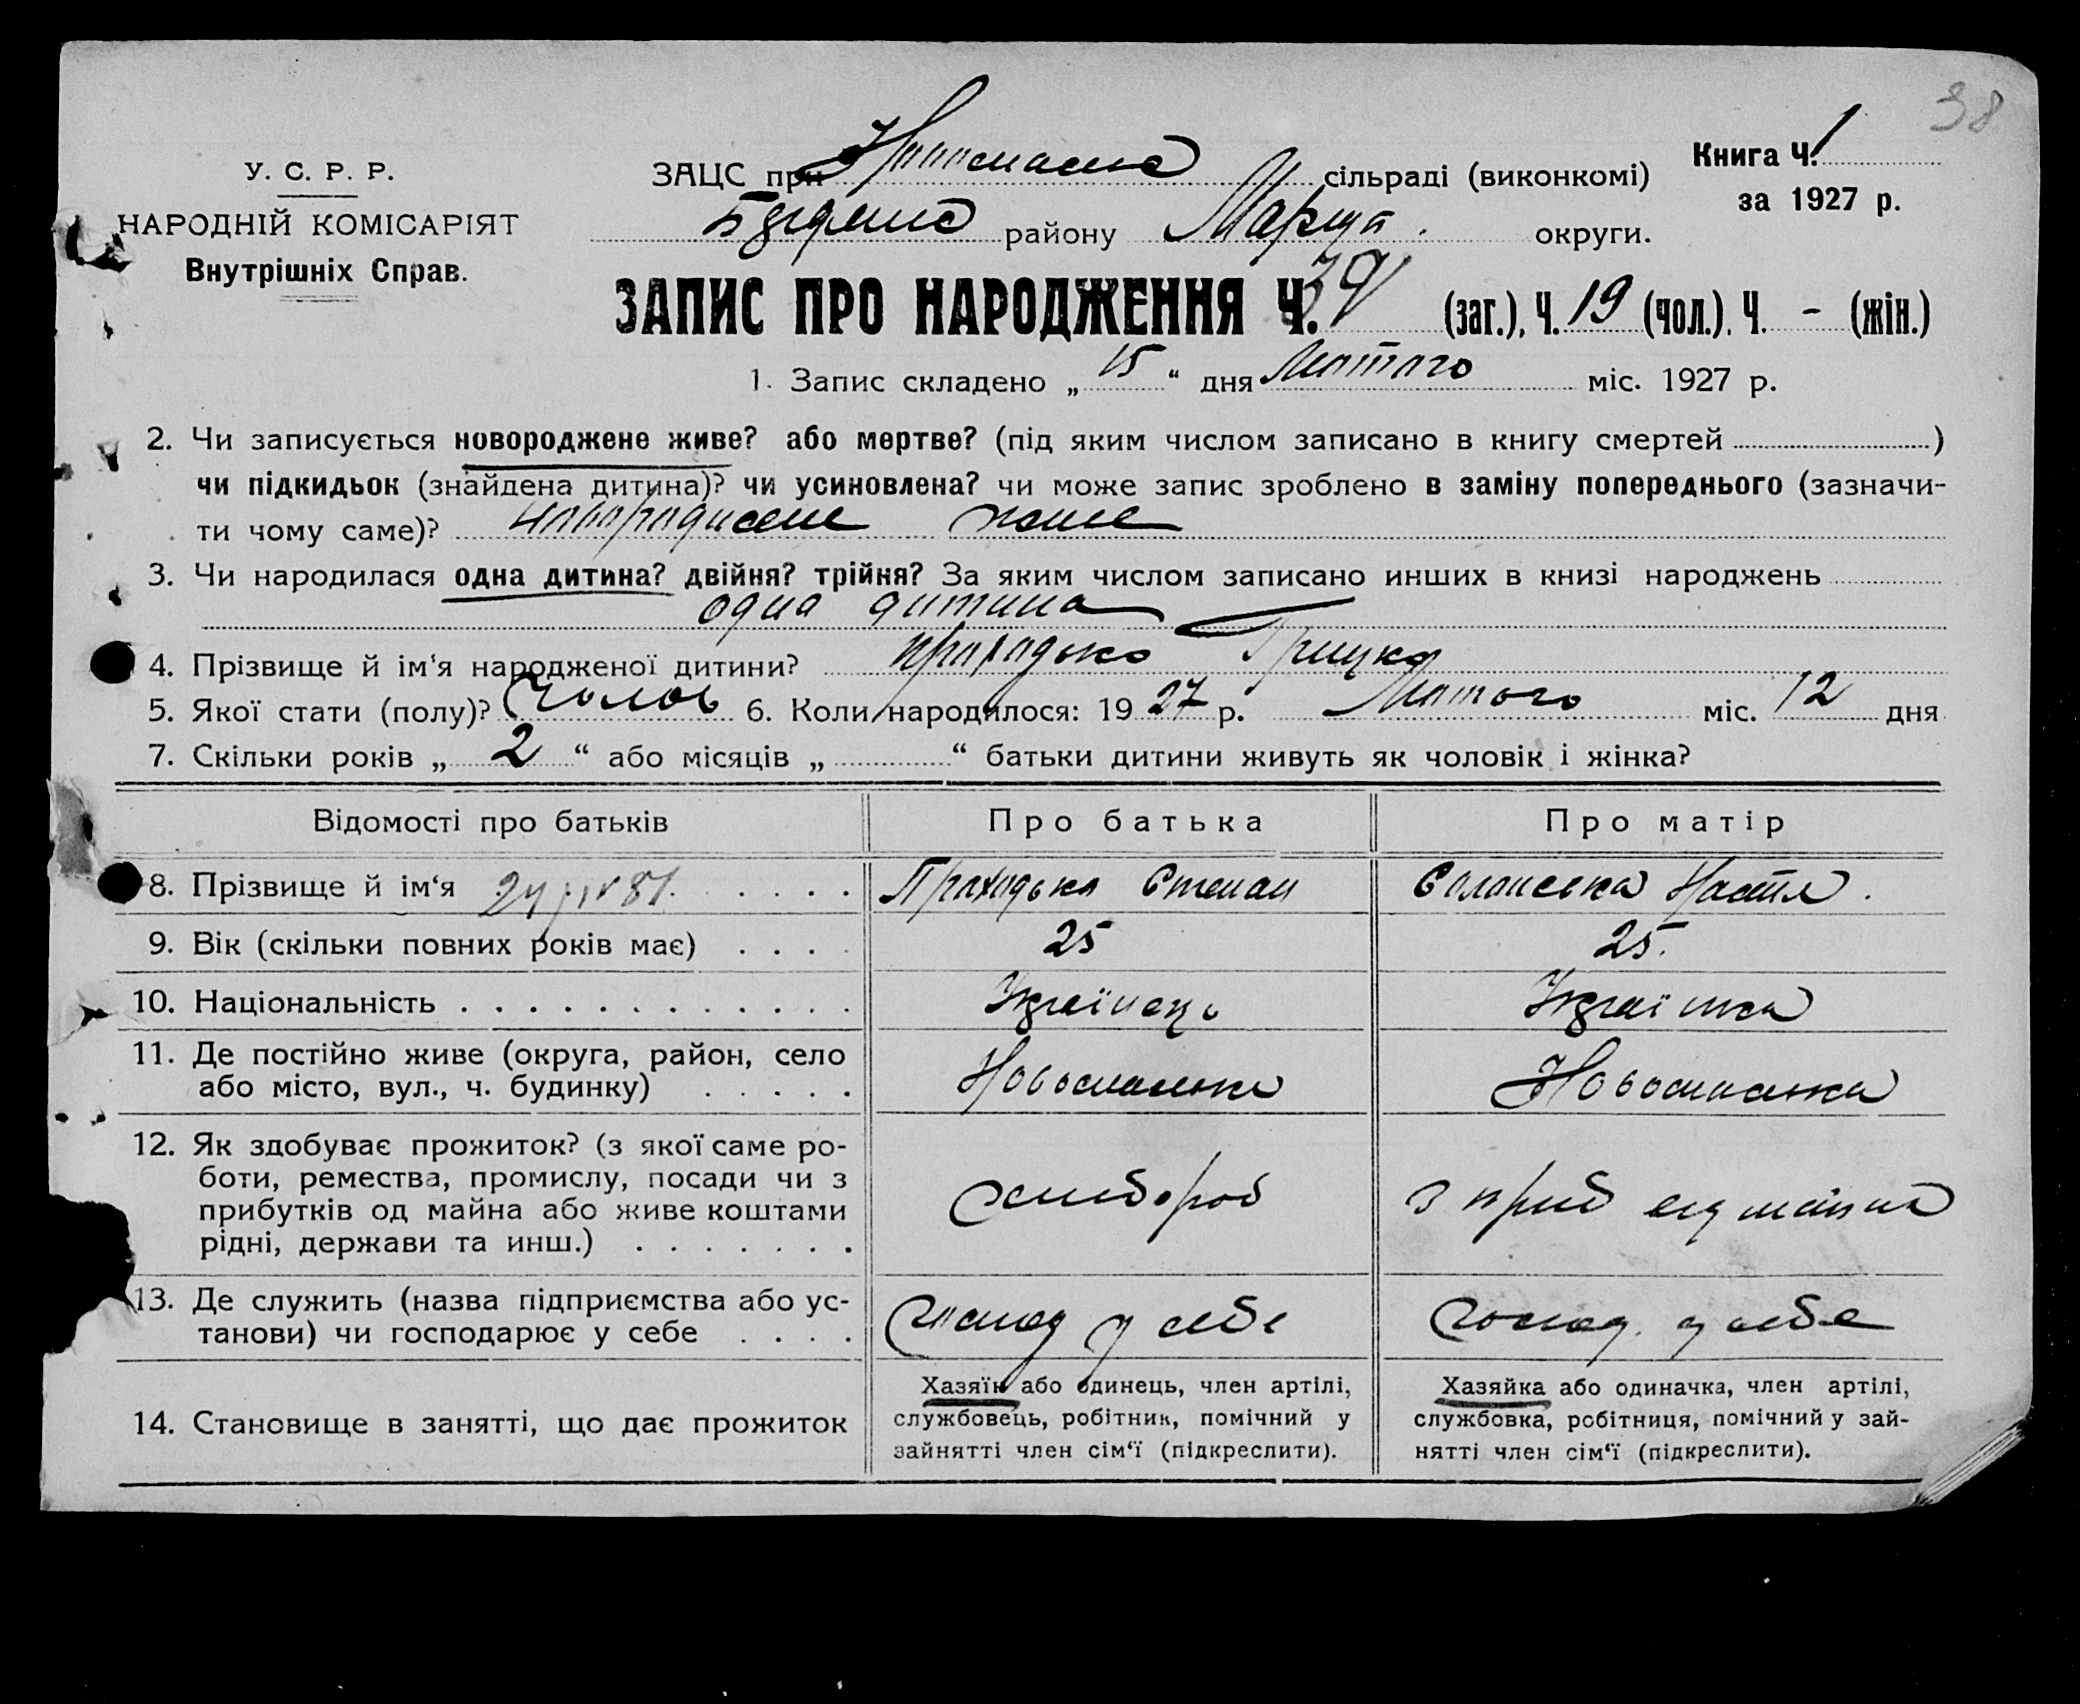 38
У. С. Р. Р.
НАРОДНІЙ КОМІСАРІЯТ
Внутрішніх Справ.
ЗАЦС при сільраді (виконкомі)
району Маріуп. округи.
Книга Ч. 1
за 1927 р.
ЗАПИС ПРО НАРОДЖЕННЯ Ч. (заг.), Ч. 19 (чол.), Ч. - (жін.)
1. Запис складено „ 15 “ дня Лютого міс. 1927 р.
2. Чи записується новороджене живе? або мертве? (під яким числом записано в книгу смертей )
чи підкидьок (знайдена дитина)? чи усиновлена? чи може запис зроблено в заміну попереднього (зазначи-
ти чому саме)? новороджене живе
3. Чи народилася одна дитина? двійня? трійня? За яким числом записано инших в книзі народжень
одна дитина
4. Прізвище й ім'я народженої дитини? Проходько Грицко
5. Якої стати (полу)? чолов 6. Коли народилося: 1927 р. Лютого міс. 12 дня
7. Скільки років „ 2 “ або місяців „ “ батьки дитини живуть як чоловік і жінка?
Відомості про батьків Про батька Про матір
8. Прізвище й ім‘я Проходько Степан Настя.
9. Вік (скільки повних років має) 25 25.
10. Національність Українець Українка
11. Де постійно живе (округа, район, село
або місто, вул., ч. будинку) Новоспаська Новоспаська
12. Як здобуває прожиток? (з якої саме ро-
боти, ремества, промислу, посади чи з
прибутків од майна або живе коштами
рідні, держави та инш.) хлібороб з приб від майна
13. Де служить (назва підприємства або ус-
танови) чи господарює у себе господ у себе господ. у себе
14. Становище в занятті, що дає прожиток
Хазяїн або одинець, член артілі,
службовець, робітник, помічний у
зайнятті член сім‘ї (підкреслити).
Хазяйка або одиначка, член артілі,
службовка, робітниця, помічний у зай-
нятті член сім‘ї (підкреслити).